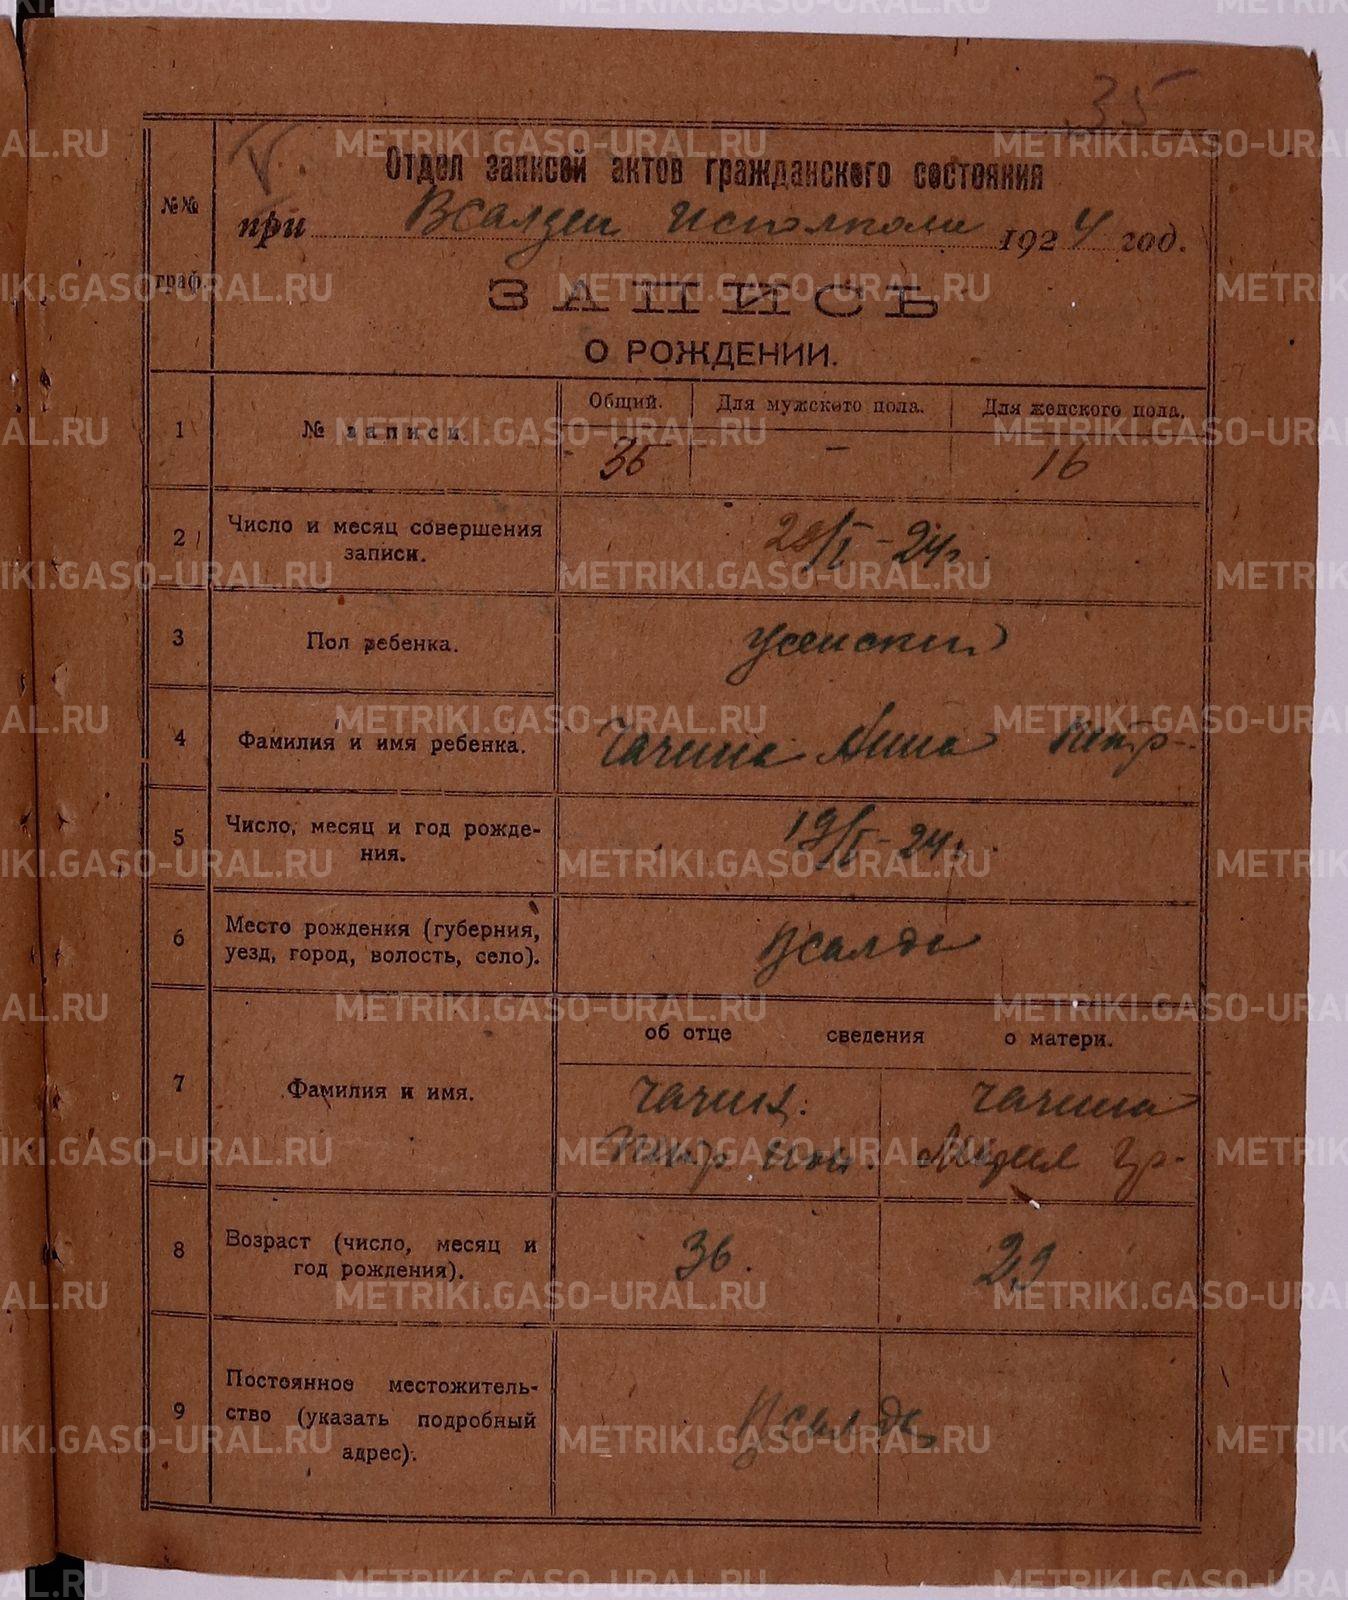 35
Отдел записей актов гражданского состояния
№№ граф.
при ВСалдин исполкоме 1924 год.
ЗАПИСЬ
О РОЖДЕНИИ.
Общий. Для мужского пола. Для женского пола.
1 № записи. 35 - 16
2 Число и месяц совершения
записи. 29/I-24г.
3 Пол ребенка. женский
4 Фамилия и имя ребенка. Чачина Анна Петр-
5 Число, месяц и год рожде-
ния. 19/I-24г.
6 Место рождения (губерния,
уезд, город, волость, село). ВСалда
об отце сведения о матери.
7 Фамилия и имя. Чачин. Чачина
Петр
8 Возраст (число, месяц и
год рождения). 36. 29
9 Постоянное местожитель-
ство (указать подробный
адрес). ВСалда
METRIKI.GASO-URAL.RU